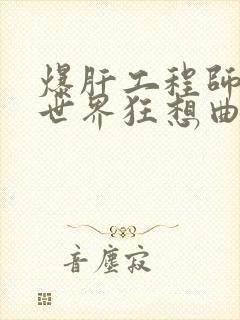 爆肝工程師
世界狂想曲
音塵寂